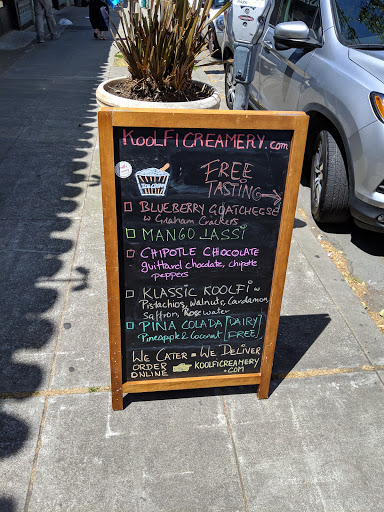 KOOLFI CREAMERY.com
FREE
TASTING
BLUEBERRY GOATCHEESE
w Graham Crackers
MANGO LASSI
CHIPOTLE CHOCOLATE
guittard chocolate, chipotle
peppers
KLASSIC KOOLFI w
Pistachios, Walnuts, Cardamom,
Saffron, Rose water
PINA COLADA [DAIRY
Pineapple & Coconut FREE]
WE CATER • WE DELIVER
ORDER KOOLFICREAMERY
ONLINE .COM